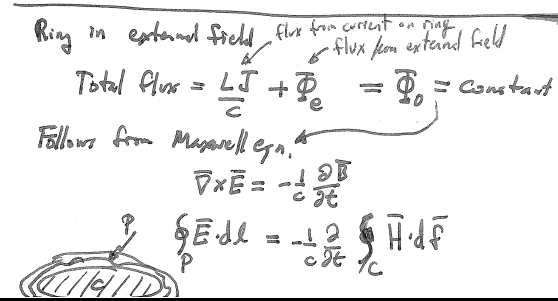 Ring in external field flux from current on ring
flux from external field
Total flux = LJ/c + Φ̄e = Φ̄o = constant
Follows from Maxwell eqn.
∇̄×Ē = -1/c ∂B̄/∂t
∮P Ē·dl = -1/c ∂/∂t ∮C H̄·df̄
P
C